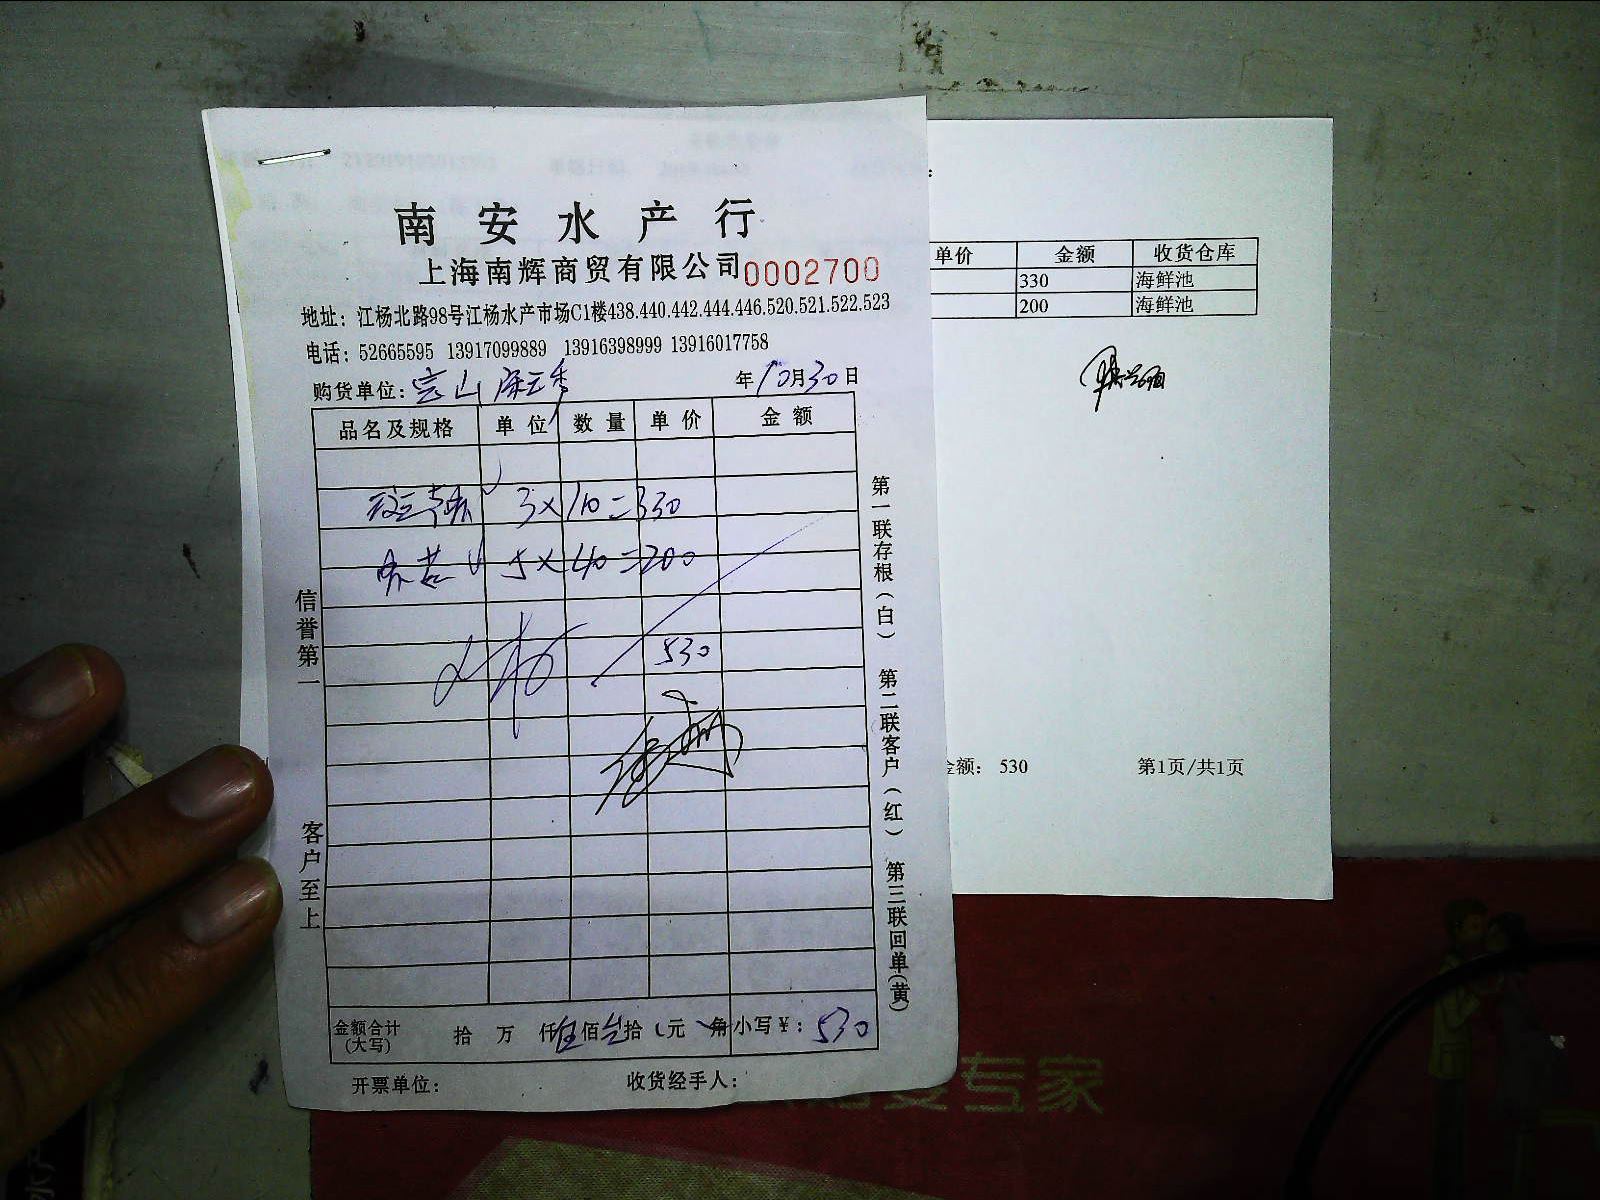 南安水产行
上海南辉商贸有限公司 0002700
地址：江杨北路98号江杨水产市场C1楼438.440.442.444.446.520.521.522.523
电话：52665595 13917099889 13916398999 13916017758
购货单位：宝山 年10月30日
品名及规格 单位 数量 单价 金额
3×110=330
5×40=200
530
金额合计(大写) 拾 万 仟伍佰叁拾 元 角 小写￥：530
开票单位： 收货经手人：
信誉第一
客户至上
第一联存根（白） 第二联客户（红） 第三联回单（黄）
单价 金额 收货仓库
330 海鲜池
200 海鲜池
金额： 530 第1页/共1页
专家